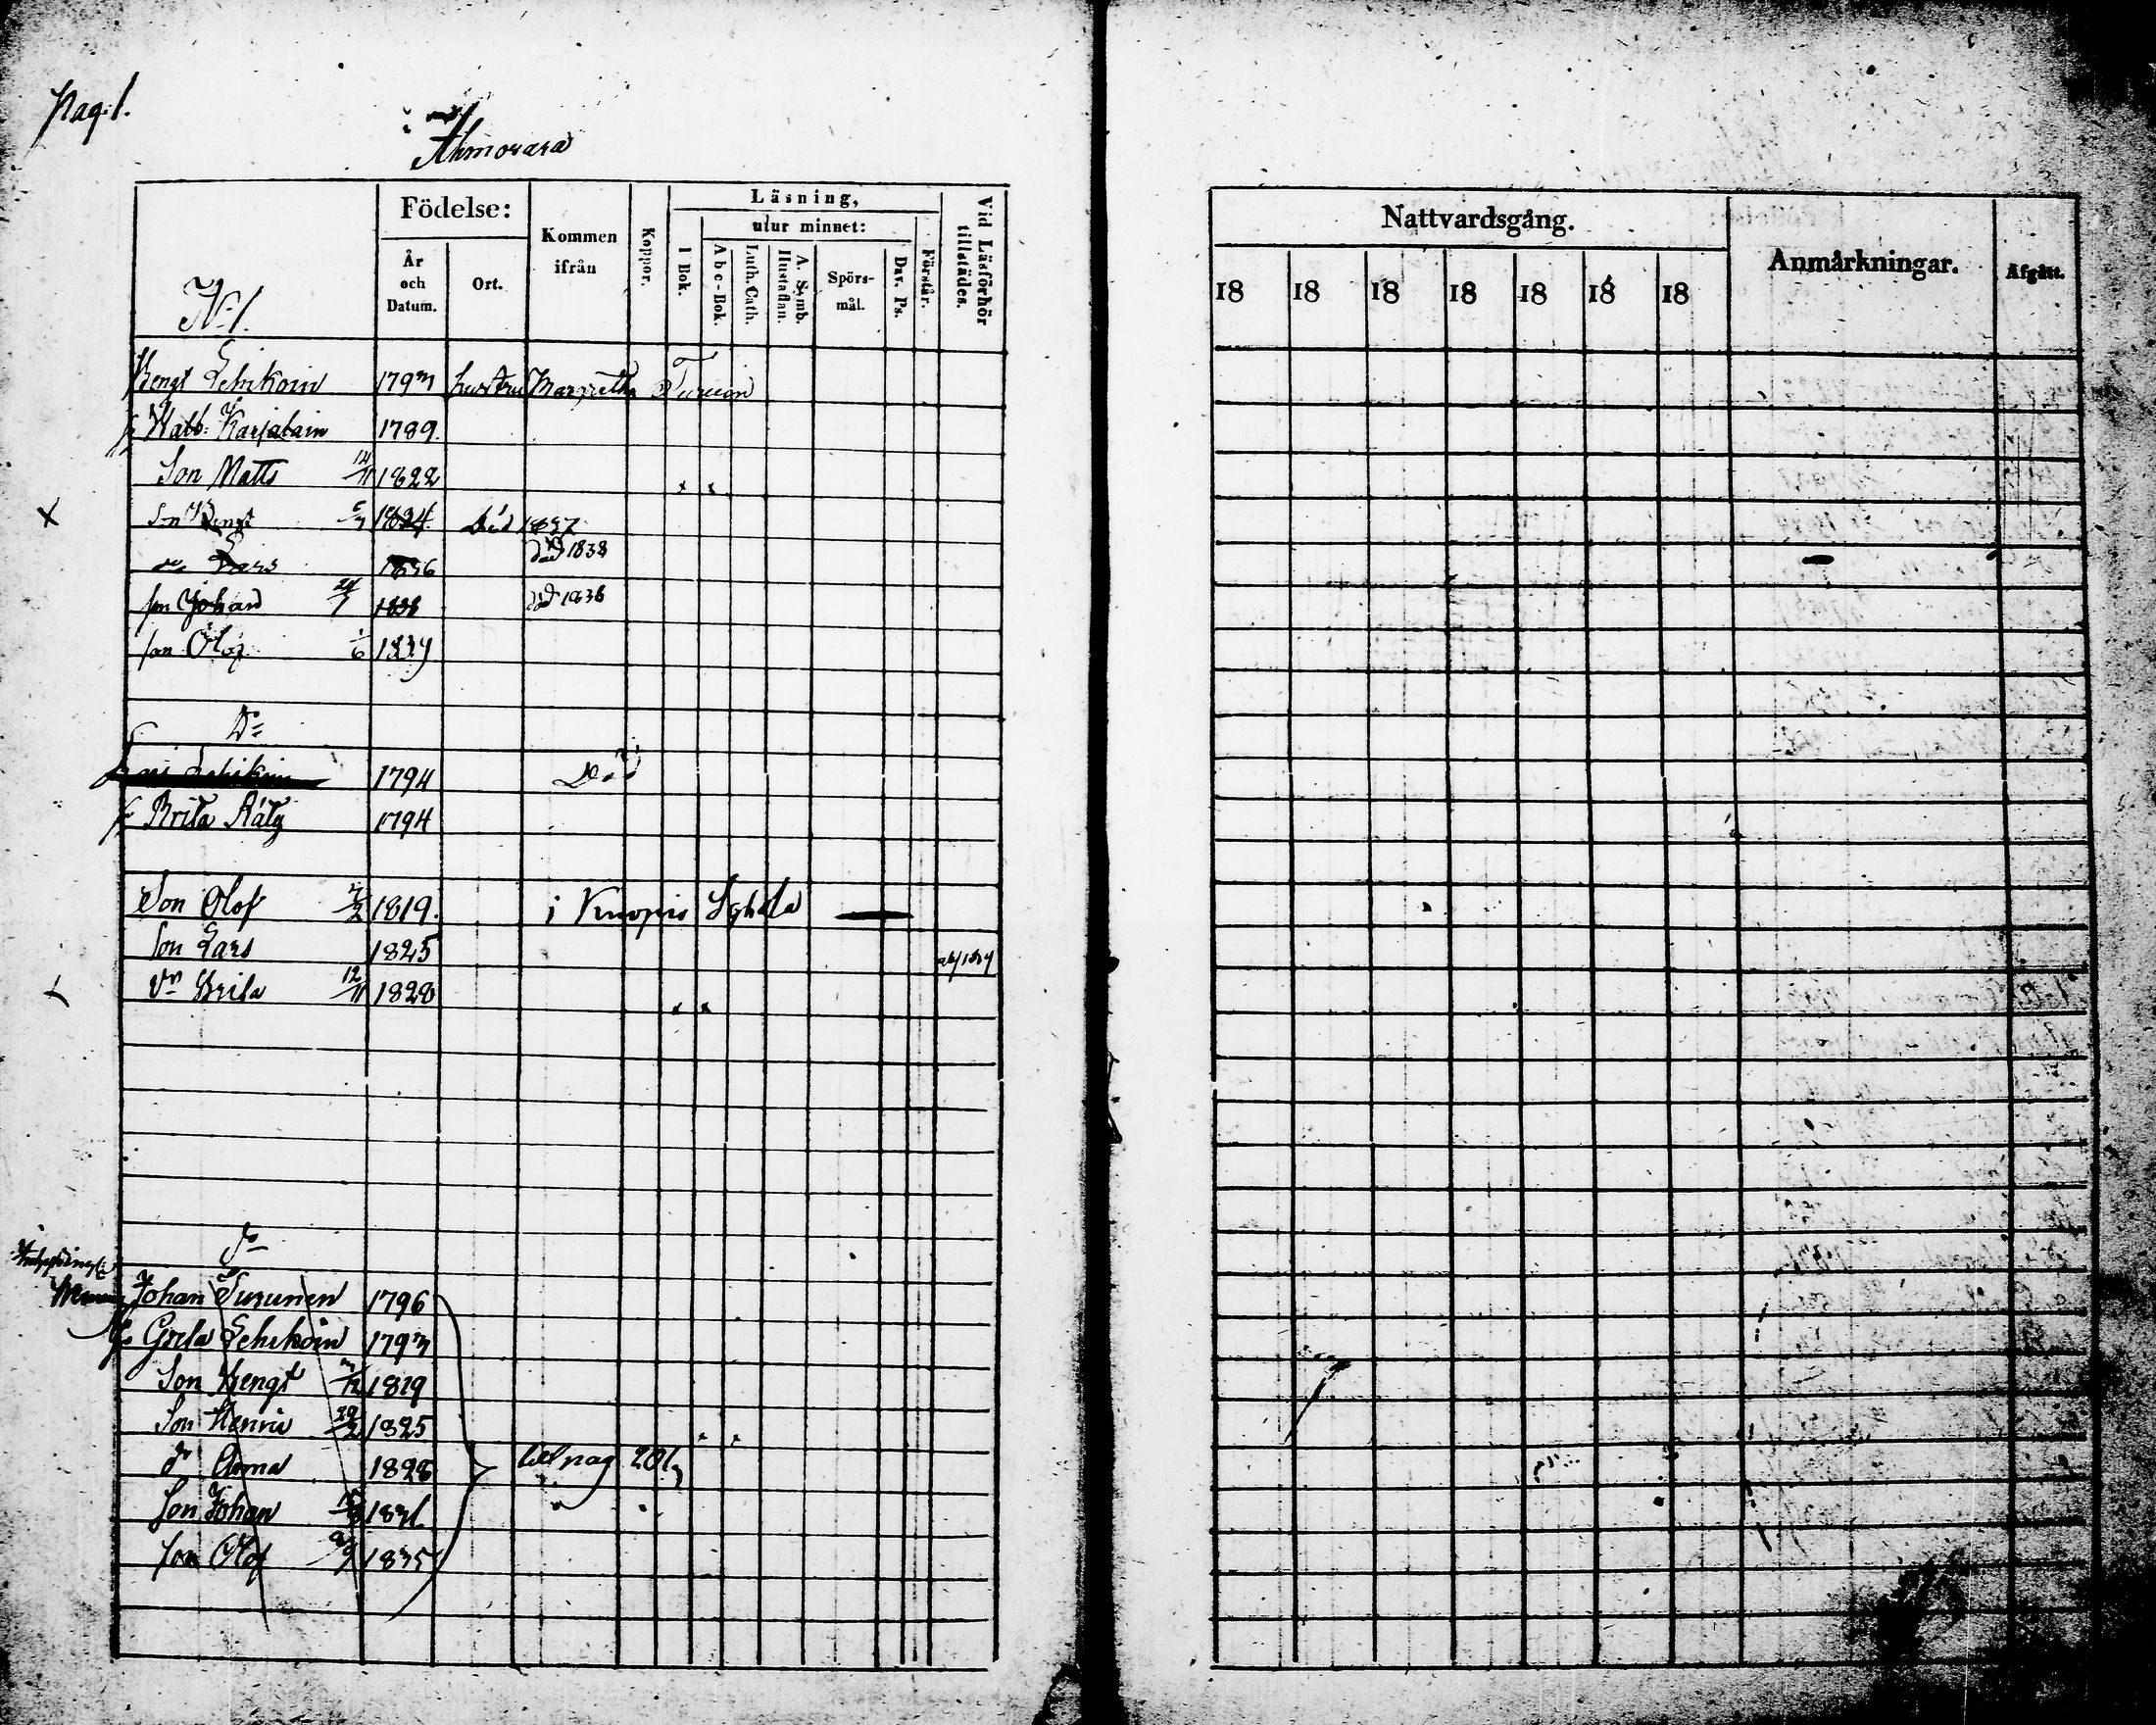 Pag: 1.
Ahmovara
Födelse:
Kommen ifrån
Koppor.
Läsning,
utur minnet:
Vid Läsförhör tillstädes.
År och Datum.
Ort.
I Bok.
Abc-Bok.
Luth. Cath.
A. Symb. Hustaflan.
Spörsmål.
Dav. Ps.
Förstår.
Nattvardsgång.
Anmärkningar.
Afgått.
18 18 18 18 18 18 18
N:1.
Bengt Lehikoin 1797 hustru Margretha Turuen
h Walb: Karjalain 1789.
Son Matts 14/11 1822
Son Bengt 5/7 1824 död 1837
Lars 1836 död 1838
son Johan 24/7 1838 död 1838
son Olof 1/6 1839
D:o
Lehikoin 1794 Död
h Brita Räty 1794
Son Olof 7/2 1819. i Kuopio
Son Lars 1825
Dr Brita 12/11 1828
D:o
Johan Turunen 1796
h Greta Lehikoin 1797
Son Bengt 1819
Son Henric 1825
dr Anna 1828 till pag 201
Son Johan 1831
son Olof 1835